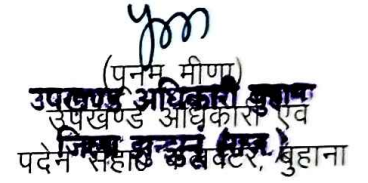 (पूनम मीणा)
उपखण्ड अधिकारी बुहाना
उपखण्ड अधिकारी एवं
जिला झुन्झुनूं (राज.)
पदेन सहा० कलक्टर, बुहाना